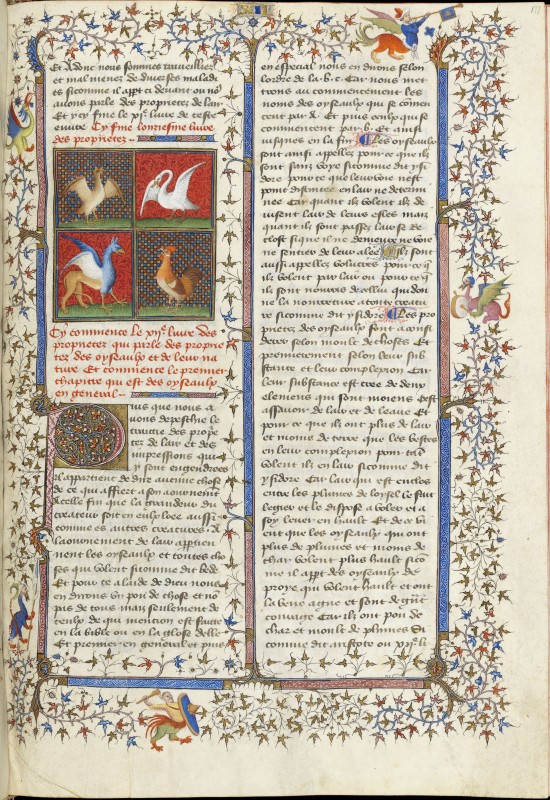 Et Adonc nous sommes traveilliez
et mal menez de diverses malad
es sicomme il appt ci devant ou no9
avons parle des proprietez de lair
Et cy fine le xje livre de ceste
euvre Cy fine lonziesme livre
des proprietez
Cy commence le xije livre des
proprietez qui parle des proprie
tez des oyseaulx et de leur na
ture Et commence le premier
chapitre qui est des oyseaulx
en general
Puis que nous a
vons depesche le
traitie des propr
tez de lair et des
impressions qui
y sont engendrees
il appartient de dire aucune chose
de ce qui affiert a son aournement
a celle fin que la grandeur du
createur soit en eulx loee aussi
comme es autres creatures A
laournement de lair appartien
nent les oyseaulx et toutes cho
ses qui volent sicomme dit bede
Et pour ce a laide de dieu nous
en dirons un pou de chose et no9
pas de tous mais seulement de
ceulx de qui mention est faitte
en la bible ou en la glose delle
Et premier en general et puis
en especial nous en dirons selon
lordre de la b c Car nous met
trons au commencement les
noms des oyseaulx qui se comen
cent par A Et puis ceulx qui se
commencent par b Et ainsi
jusques en la fin Les oyseaulx
sont ainsi appellez pour ce que ilz
sont sanz voye sicomme dit ysi
dore pour ce que leur voie nest
point distincte en lair ne determi
nee Car quant ilz volent ilz de
visent lair de leurs esles mais
quant ilz sont passez lair se re
clost si que il ne demeure ne voie
ne sentier de leur alee Ilz sont
aussi appellez volucres pour ce q
ilz volent par lair ou pour ce q
ilz sont nourris de cellui qui don
ne la nourreture a toute creatu
re sicomme dit ysidore Les pro
prietez des oyseaulx sont a consi
derer selon moult de choses Et
premierement selon leur sub
stance et leur complexion Car
leur substance est cree de deux
elemens qui sont moiens cest
assavoir de lair et de leaue Et
pour ce que ilz ont plus de lair
et moins de terre que les bestes
en leur complexion pour tant
volent ilz en lair sicomme dit
ysidore Car lair qui est enclos
entre les plumes de loysel le fait
legier et le dispose a voler et a
soy lever en hault Et de ce vi
ent que les oyseaulx qui ont
plus de plumes et moins de
char volent plus hault sico
me il appt des oyseaulx de
proye qui volent hault et ont
la vene ague et sont de grant
courage Car ilz ont pou de
char et moult de plumes Si
comme dit aristote ou xije li